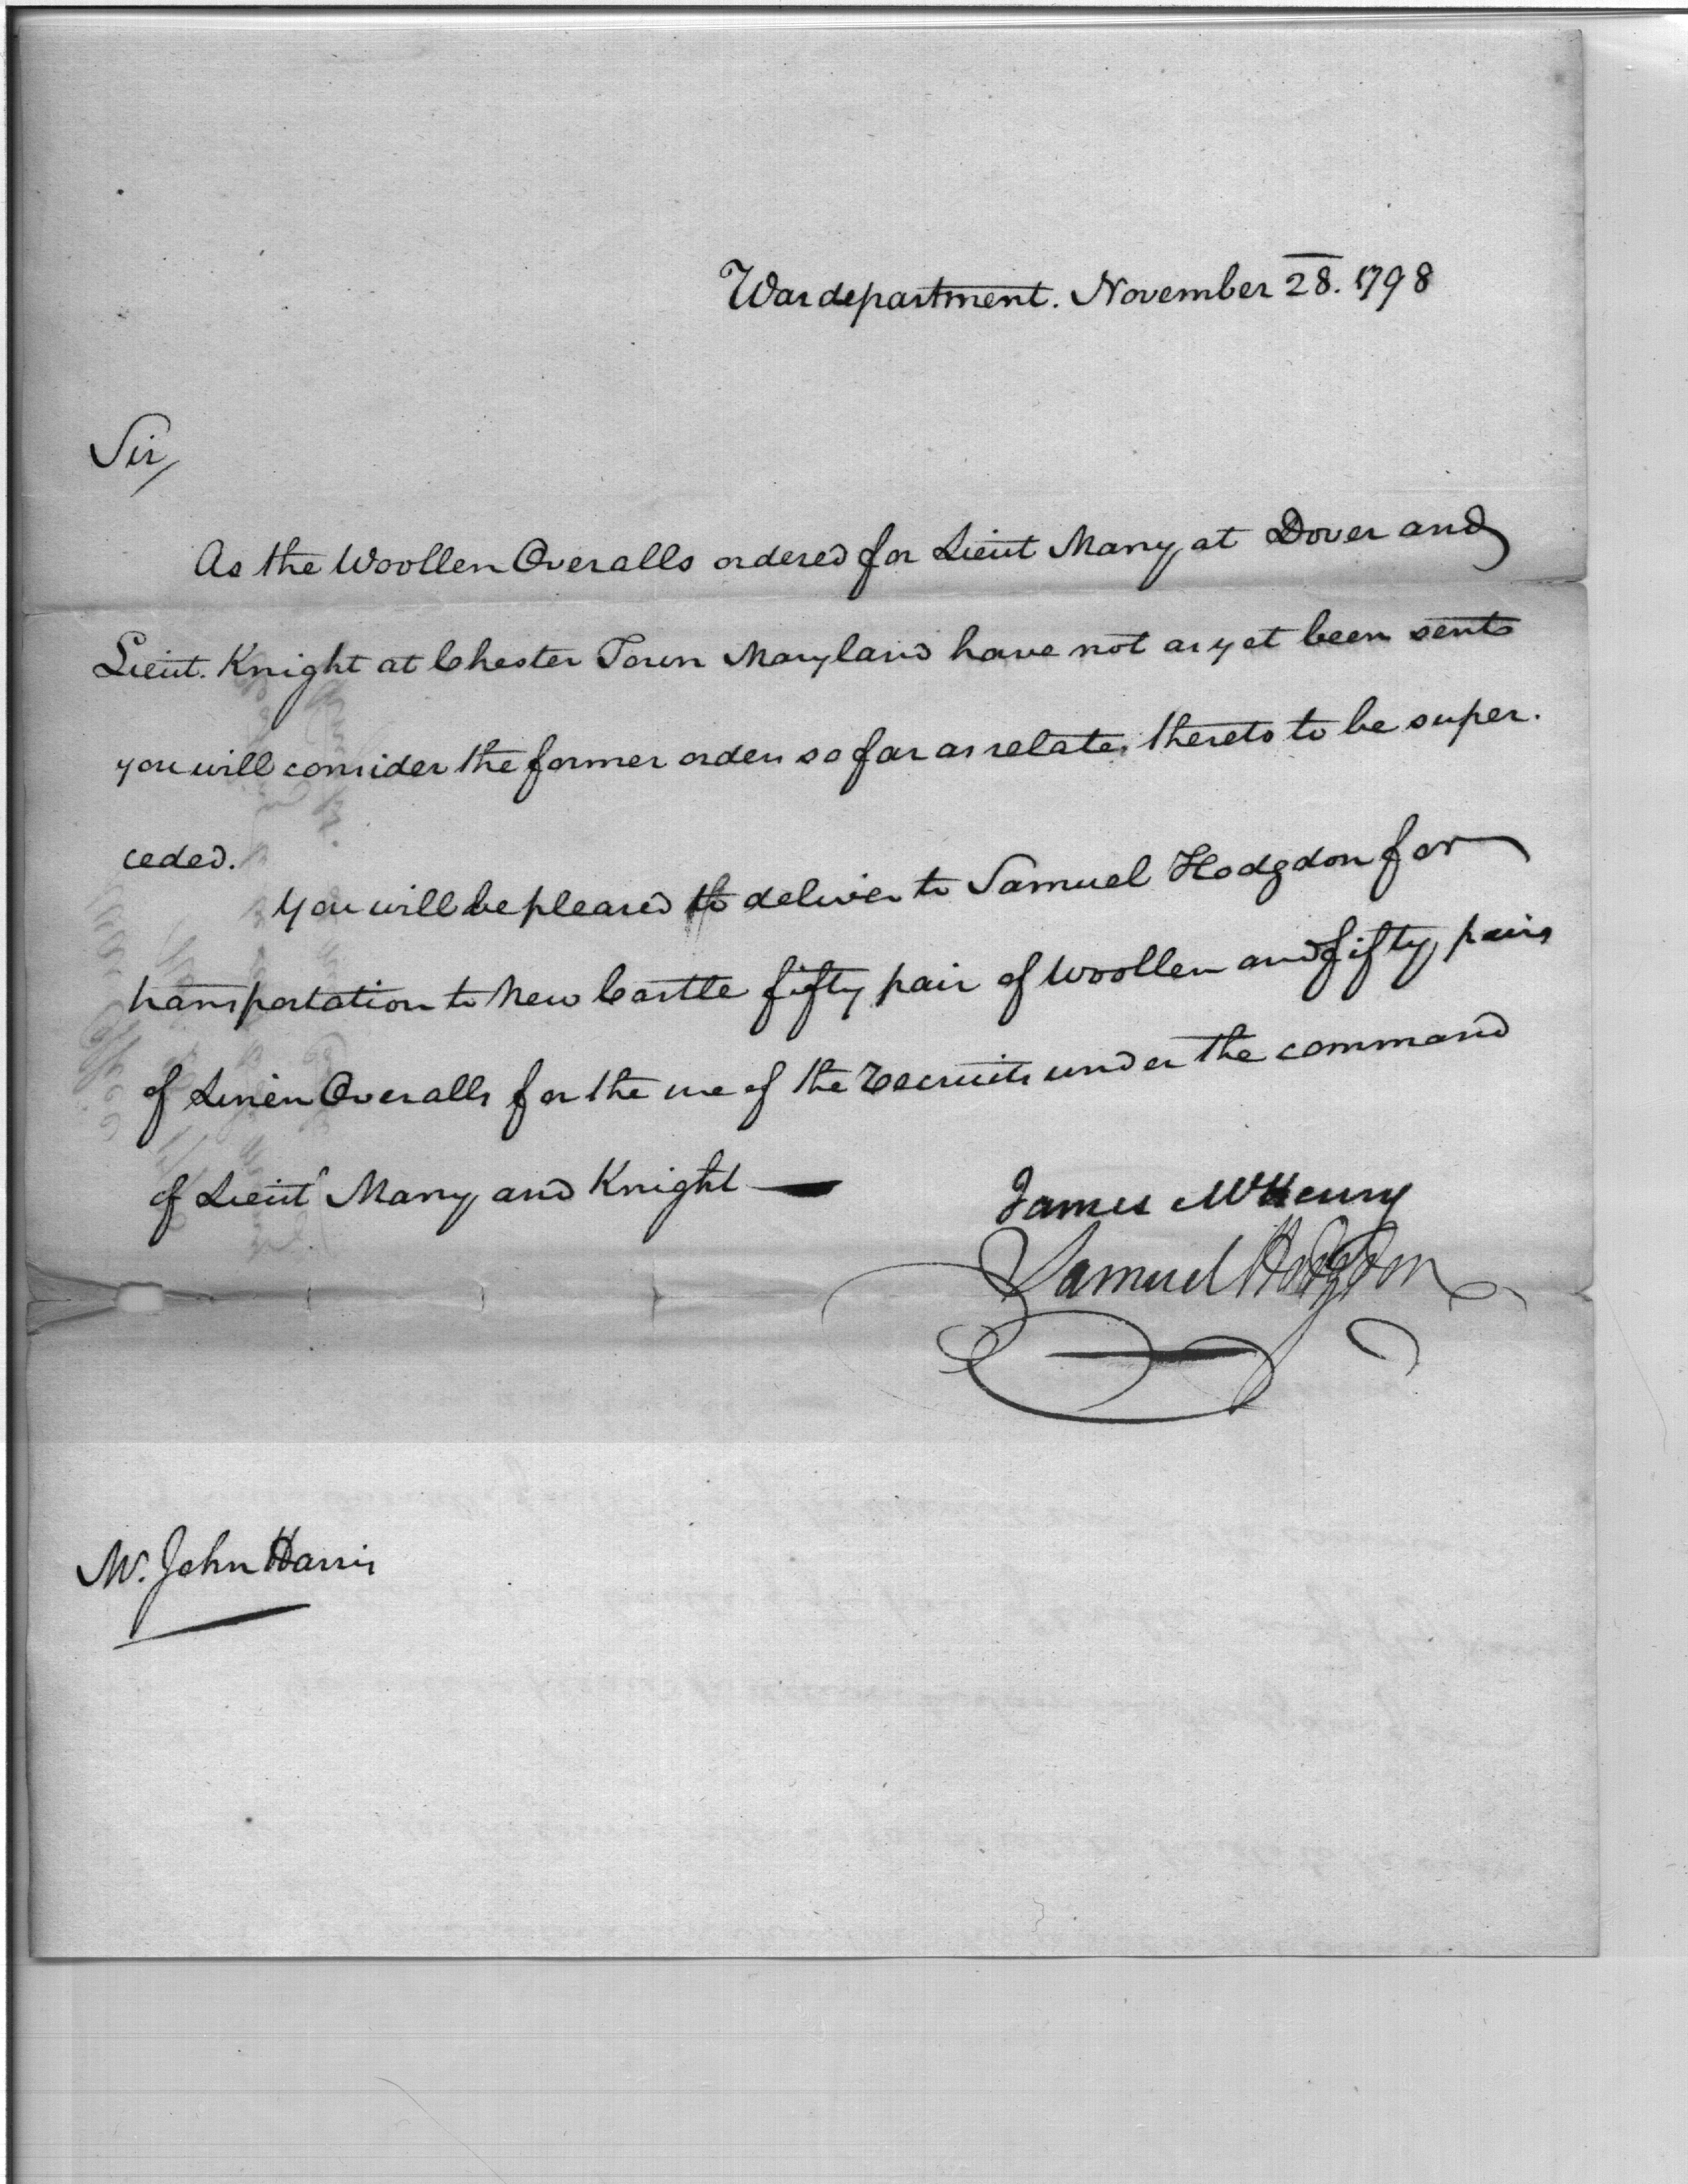 War department. November 28. 1798
Sir,
As the Woollen Overalls ordered for Lieut Many, at Dover and
Lieut. Knight at Chester Town Maryland have not as yet been sent
you will consider the former order so far as relates thereto to be super.
ceded.
You will be pleased to deliver to Samuel Hodgdon for
transportation to New Castle fifty pair of Woollen and fifty pairs
of Linen Overalls for the use of the recruits under the command
of Lieuts Many and Knight —
James McHenry
Samuel Hodgdon
Mr. John Harris